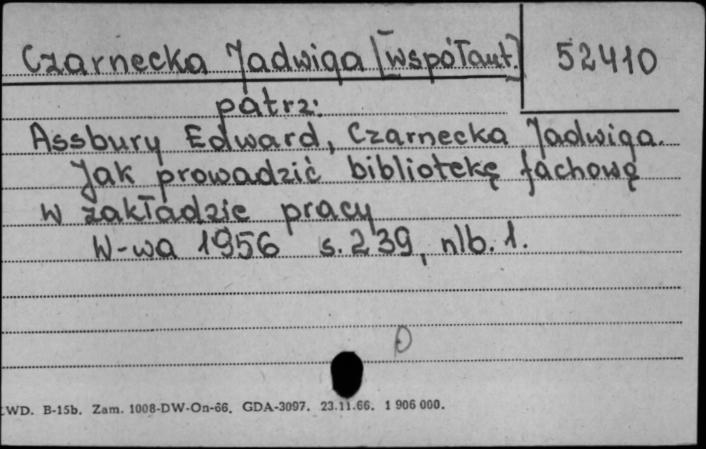 Czarnecka Jadwiga [współaut.]
52410
patrz:
Assbury Edward, Czarnecka Jadwiga.
Jak prowadzić bibliotekę fachową
w zakładzie pracy
W-wa 1956 s. 239, nlb. 1.
WD. B-15b. Zam. 1008-DW-On-66. GDA-3097. 23.11.66. 1 906 000.